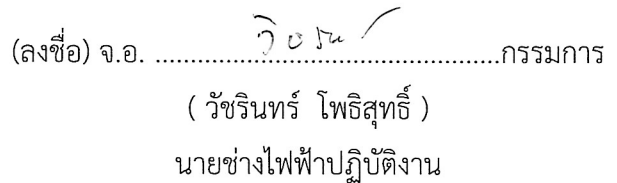 (ลงชื่อ) จ.อ. ................................................กรรมการ
( วัชรินทร์ โพธิสุทธิ์ )
นายช่างไฟฟ้าปฏิบัติงาน